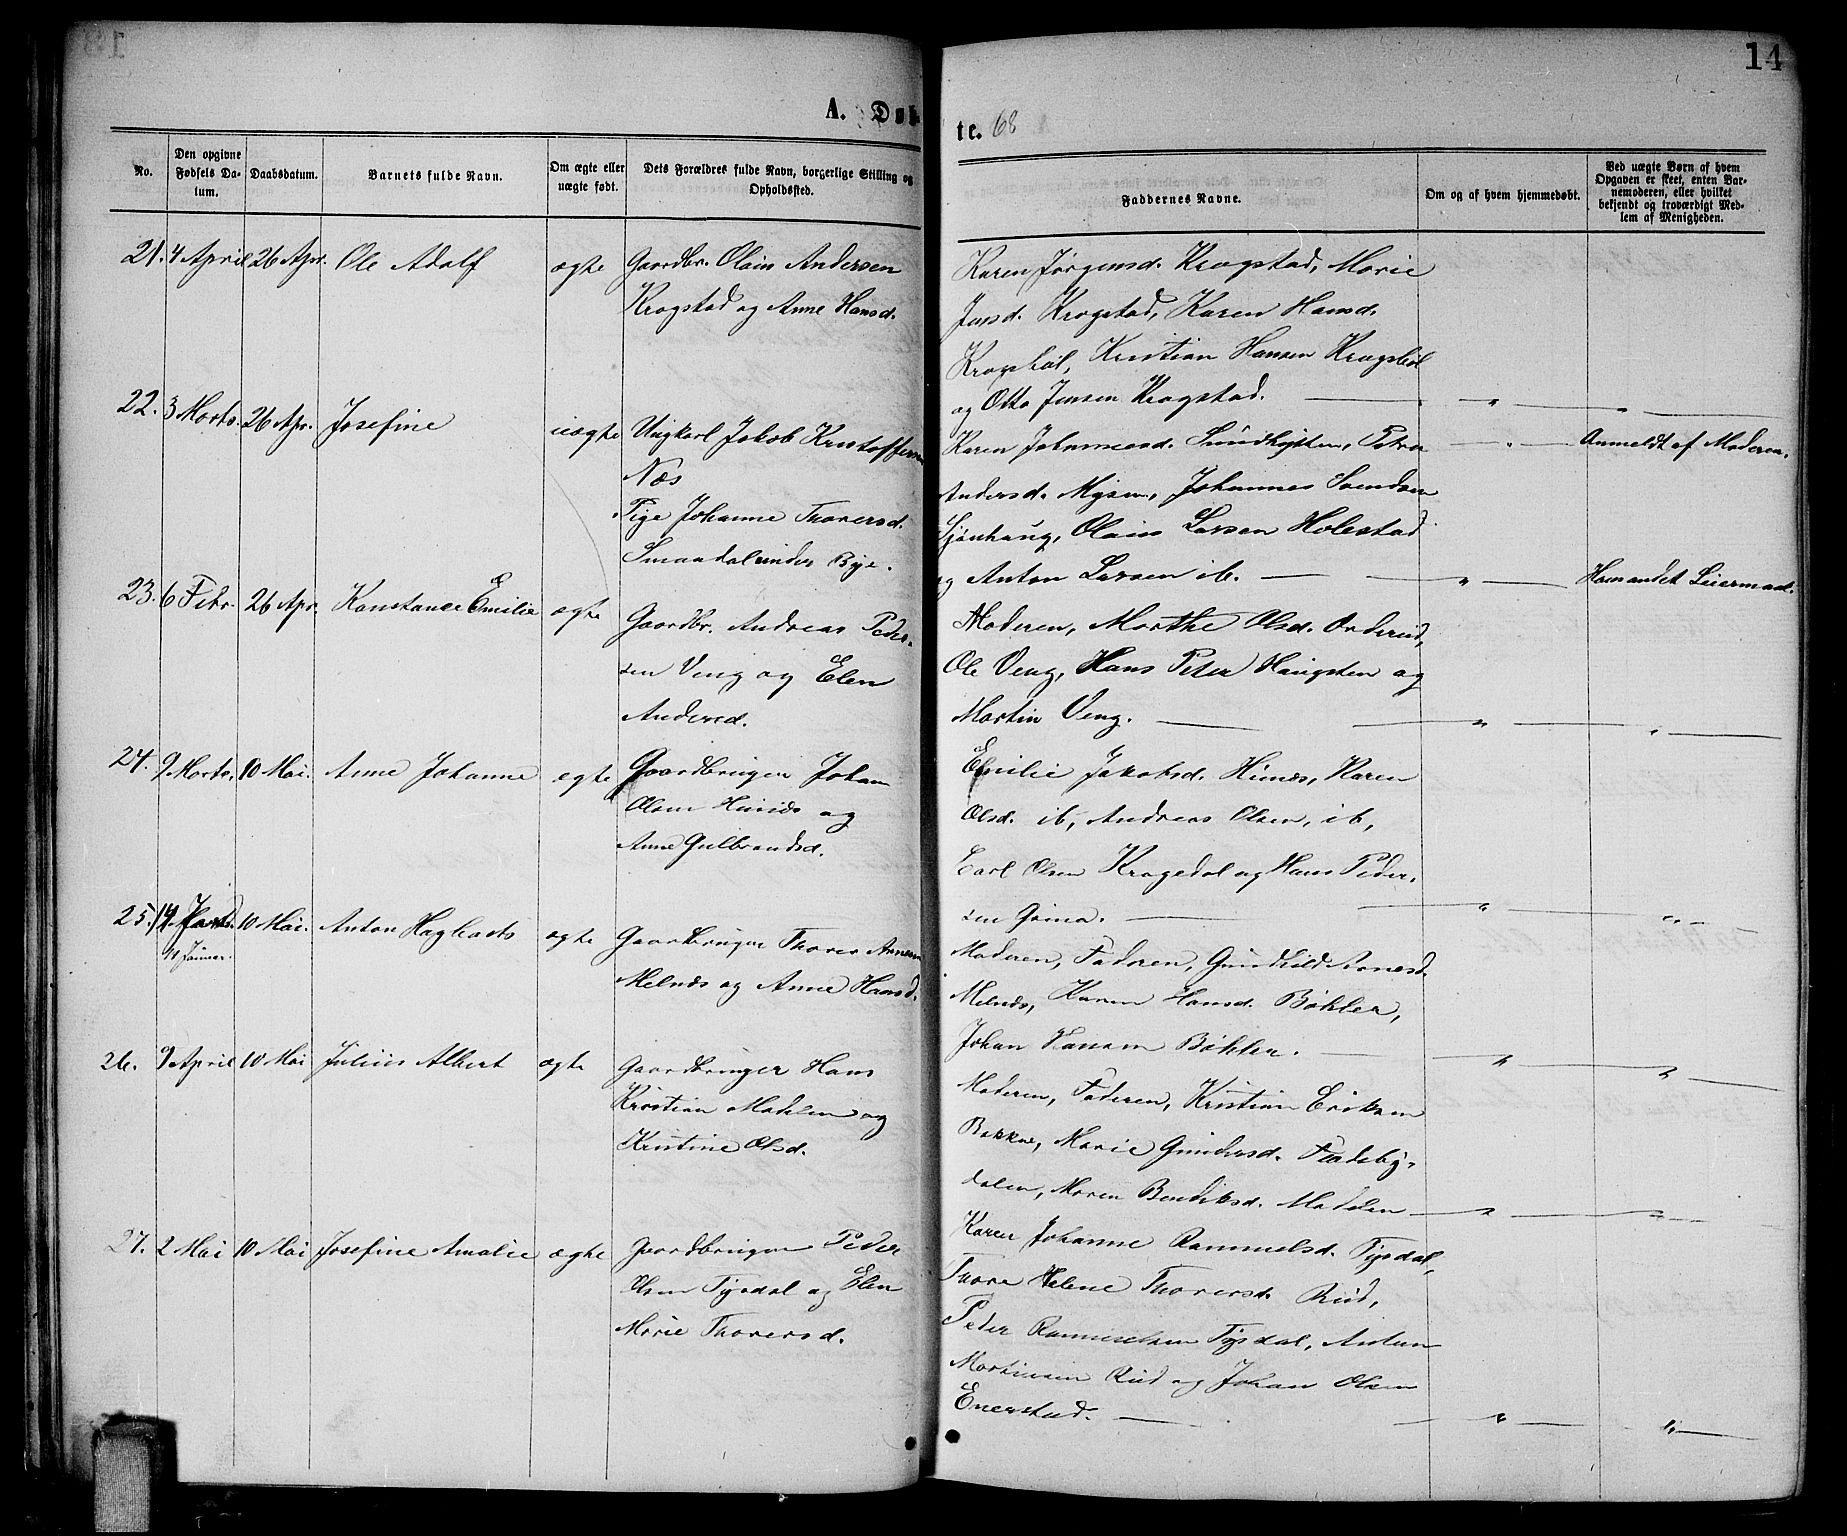 14
A. Døb
te. 68
No.
Den opgivne Fødsels Datum.
Daabsdatum.
Barnets fulde Navn.
Om ægte eller uægte født.
Dets Forældres fulde Navn, borgerlige Stilling og Opholdssted.
Faddernes Navne.
Om og af hvem hjemmedøbt.
Ved uægte Børn af hvem Opgaven er skeet, enten Barnemoderen, eller hvilket bekjendt og troværdigt Medlem af Menigheden.
21. 4 April 26 Apr. Ole Adolf ægte Gaardbr. Olaus Andersen
Krogstad og Anne Hansd.
Karen Jørgensd. Krogstad, Marie
Jensd. Krogstad, Karen Hansd.
Krogstad, Kristian Hansen Krogstad
og Otto Jensen Krogstad. — " — " —
22. 3 Marts. 26 Apr. Josefine uægte Ungkarl Jakob Kristoffersen
Næs
Pige Johanne Thorersd.
Smaadal under Bye.
Karen Johannesd. Sundhytten, Petra — " — Anmeldt af Moderen.
Andersd. Mysen, Johannes Svendsen
Sjønhaug, Olaus Larsen Holestad
og Anton Larsen ib. — " — Hans andet Leiermaal.
23. 6 Febr. 26 Apr. Konstance Emilie ægte Gaardbr. Andreas Peder-
sen Veng og Elen
Andersd.
Moderen, Marthe Olsd. Orderud,
Ole Veng, Hans Peter Haugsten og
Martin Veng. — " — " —
24. 9 Marts. 10 Mai. Anne Johanne ægte Gaardbruger Johan
Olsen Hunæs og
Anne Gulbrandsd.
Emilie Jakobsd. Hunæs, Karen
Olsd. ib, Andreas Olsen, ib,
Carl Olsen Kragedal og Hans Peder-
sen — " — " —
25. 14 10 Mai. Anton Hagbarts ægte Gaardbruger Thorer Arnesen
Januar.
Melnæs og Anne Hansd.
Moderen, Faderen, Gundhild Arnesd.
Melnæs, Karen Hansd. Bøhler,
Johan Hansen Bøhler. — " — " —
26. 9 April 10 Mai Julius Albert ægte Gaardbruger Hans
Kristian Madslien og
Kristine Olsd.
Moderen, Faderen, Kristian Eriksen
Bakkne, Marie Gundersd. Fladeby-
dalen, Maren Bendiksd. — " — " —
27. 2 Mai 10 Mai Josefine Amalie ægte Gaardbruger Peder
Olsen Tysdal og Elen
Marie Thorersd.
Karen Johanne Rammelsd. Tysdal,
Thora Helene Thorersd. Rud,
Peder Tysdal, Anton
Martinsen Rud og Johan Olsen
Enerstad. — " — " —